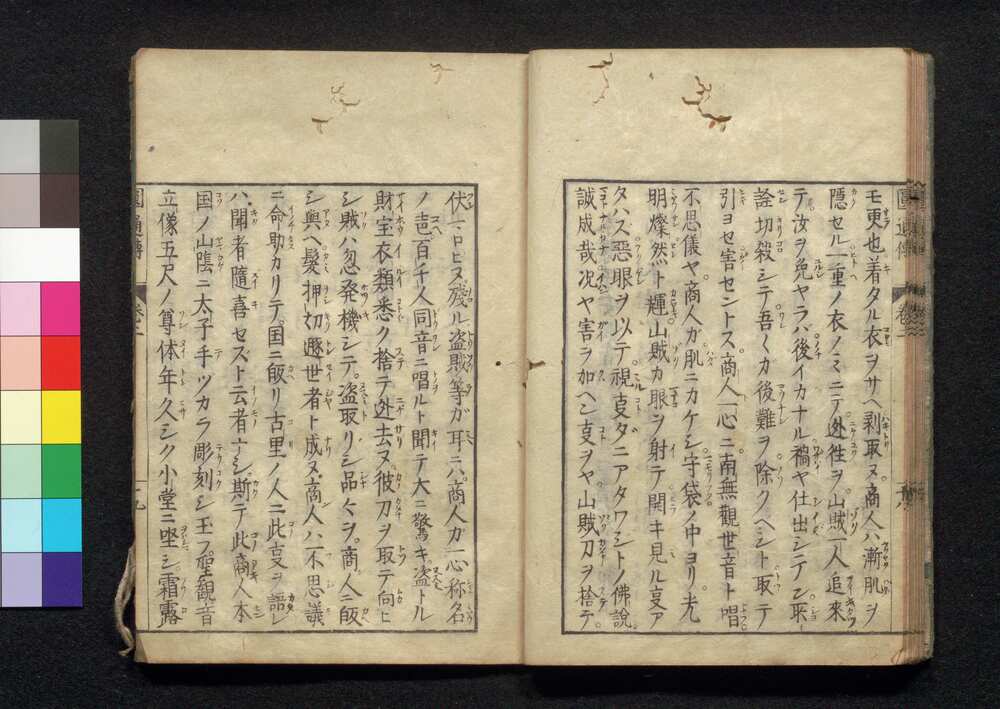 モ更也着タル衣ヲサヘ剥取ヌ商人ハ漸肌ヲ
隠セル一重ノ衣ノミニテ迯徃ヲ山賊一人追来
テ汝ヲ免ヤラバ後イカナル禍ヤ仕出シテン所
詮切殺シテ吾々カ後難ヲ除クヘシト取テ
引ヨセ害セントス商人一心ニ南無觀世音ト唱
不思儀ヤ商人ガ肌ニカケシ守袋ノ中ヨリ光
明燦然ト輝山賊カ眼ヲ射テ開キ見ル㕝ア
タハス惡眼ヲ以テ視㕝ダニアタワシトノ佛説
誠成哉况ヤ害ヲ加ヘン㕝ヲヤ山賊刀ヲ捨テ
圓通傳 卷二
伏マロヒヌ残ル盗賊等ガ耳ニハ商人カ一心称名
ノ声百千人同音ニ唱ルト聞テ大ニ驚キ盗トル
財宝衣類悉ク捨テ迯去ヌ彼刀ヲ取テ向ヒ
シ賊ハ忽発機シテ盗取リシ品々ヲ商人ニ皈
シ與ヘ髮押切遯世者ト成ヌ商人ハ不思議
ニ命助カリテ国ニ皈リ古里ノ人ニ此㕝ヲ語レ
ハ聞者隨喜セズト云者ナシ斯テ此商人本
国ノ山陰ニ太子手ツカラ彫刻シ玉フ聖觀音
立像五尺ノ尊体年久シク小堂ニ坐シ霜露
圓通傳 卷二 十九